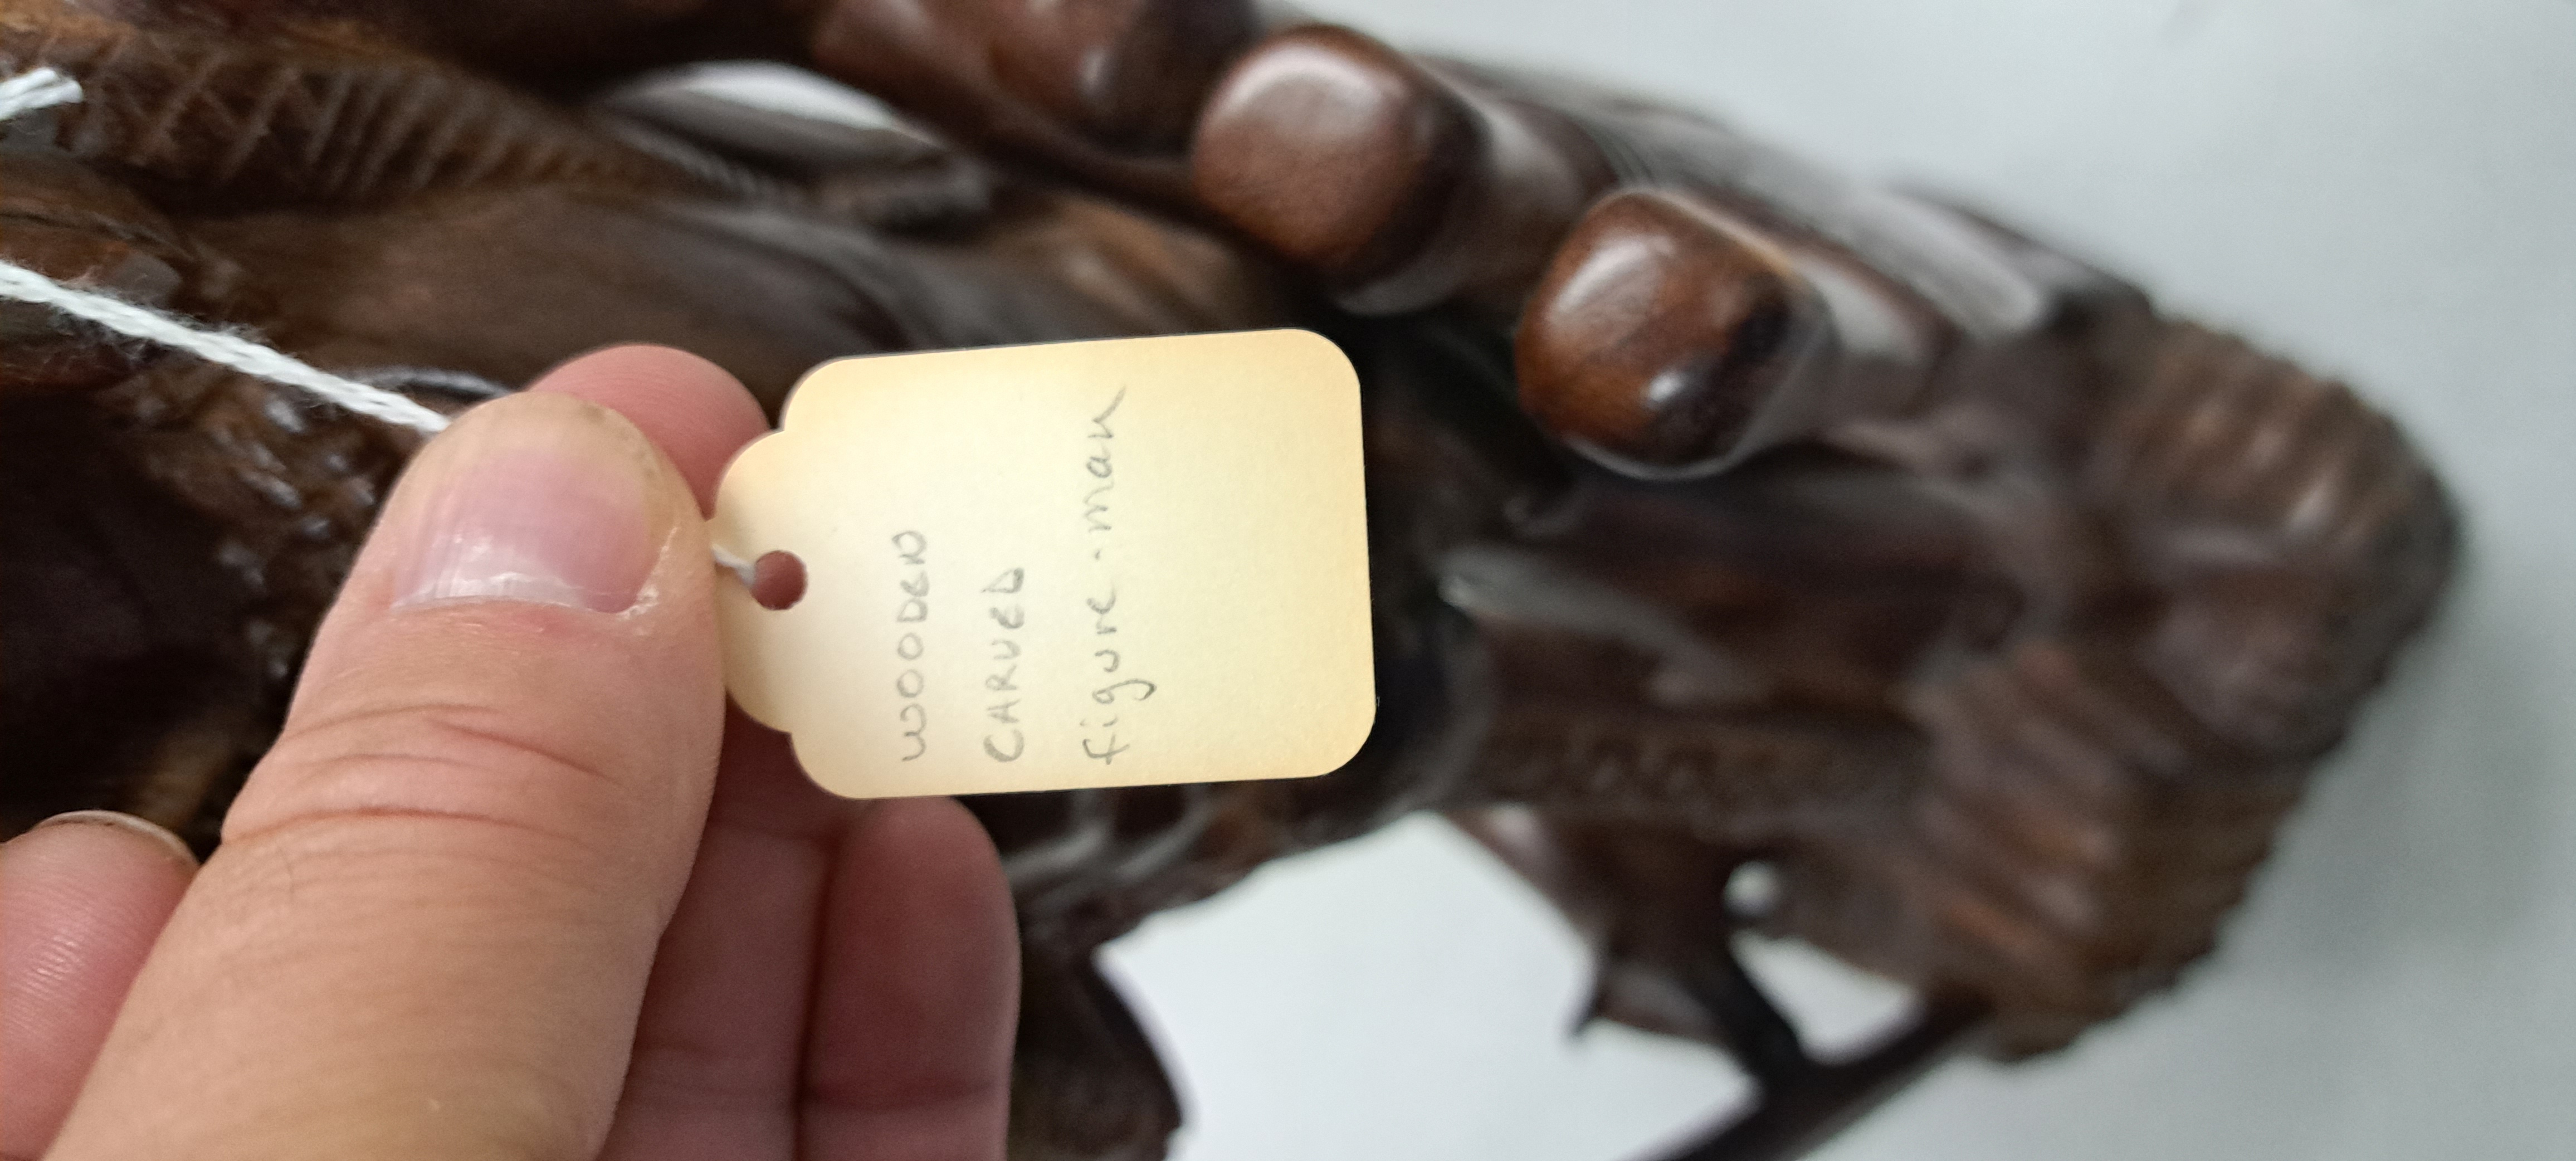 WOODEN
CARVED
figure - man